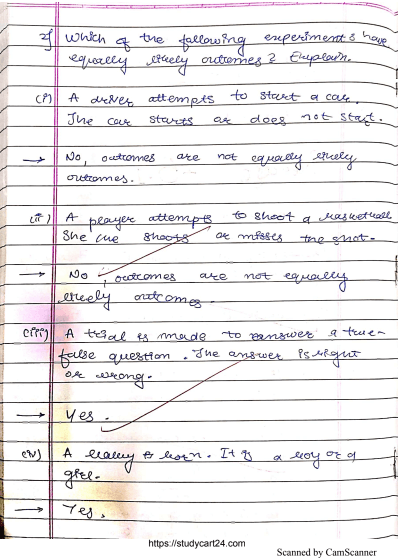 2] Which of the following experiments have
equally likely outcomes? Explain.
(i) A driver attempts to start a car.
The car starts or does not start.
→ No, outcomes are not equally likely
outcomes.
(ii) A player attempts to shoot a basketball
She she shoots or misses the shot.
→ No, outcomes are not equally
likely outcomes.
(iii) A trial is made to answer a true-
false question. The answer is right
or wrong.
→ Yes.
(iv) A baby is born. It is a boy or a
girl.
→ Yes.
https://studycart24.com
Scanned by CamScanner